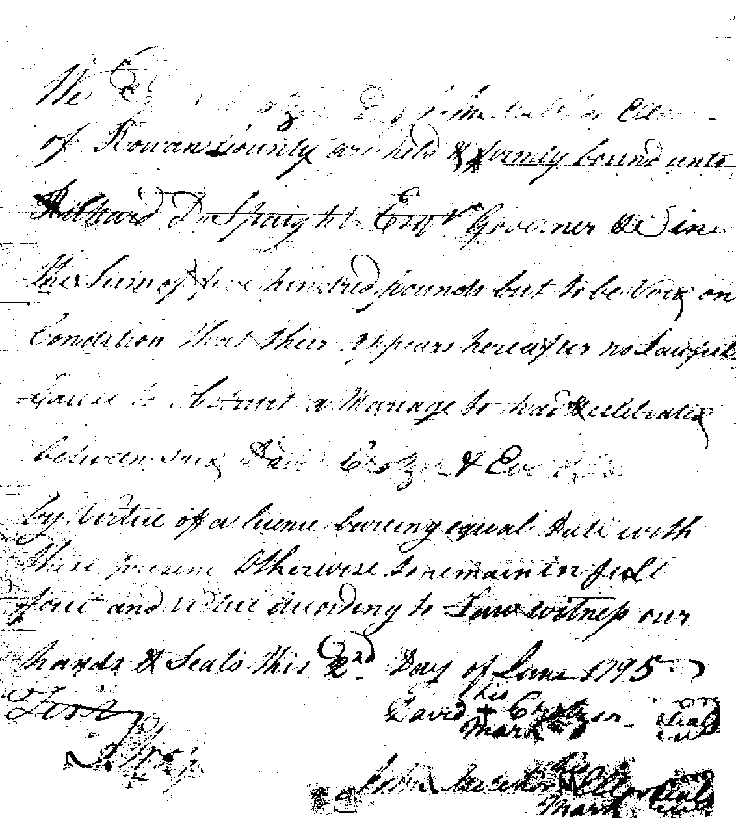 We
of Rowan County are held & firmly bound unto
Richard D. Spaight Esqr Governer &c in
the Sum of five hundred pounds but to be Void on
Condition that their appears hereafter no Lawfull
Cause to Obstruct a Marriage to had & celebrated
between said David Crotzer & Eve
by Virtue of a license bareing equal Date with
these presents Otherwise to remain in full
force and virtue according to Law witness our
hands & Seals this 2nd Day of June 1795
Test David his + mark Crotzer Seal
John mark Seal